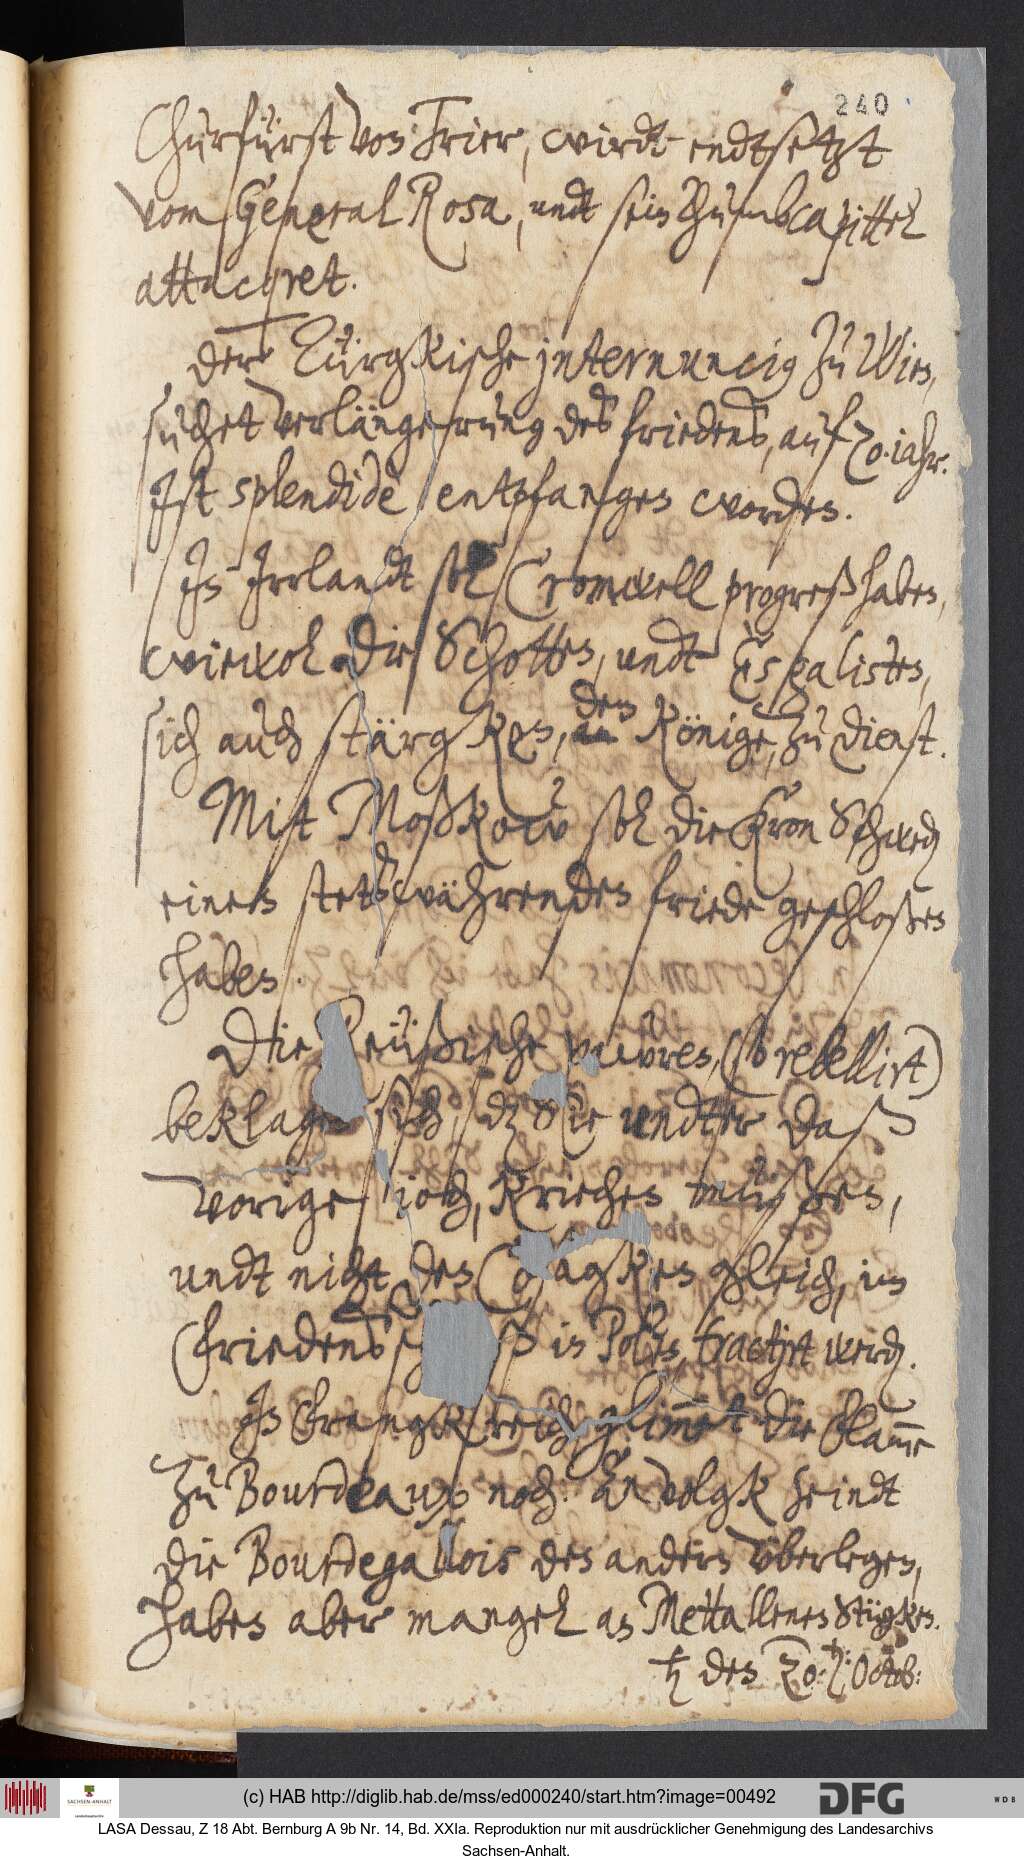 240
Churfürst von Trier, wirdt endtsetzt
vom General Rosa, undt sein Thumbcapittel
attacqret.
Der Türgkische internuncig zu Wien,
suchet verlängerung des friedens, auf 20. iahr.
Ist splendidè entpfangen worden.
In Irrlandt sol Cromwell progreß haben,
wiewol die Schotten, undt
sich auch stärgken, dem Könige, zu dienst.
Mit Moßkow sol die Kron Schwed
einen stetswährenden friede geschloßen
haben.
Die Reüßische (so rebellirt)
beklagen sich, dz Sie undter daß
vorige ioch, kriechen müßen,
undt nicht den Coßagken gleich, im
friedensschluß in Polen, tractirt werd.
In Frangkreich, glimmet die flamme
zu Bourdeaux noch. An volgk seindt
die Bourdegallois den andern überlegen,
haben aber mangel an Mettallenen Stügken.
♄ den 20. Octob:
(c) HAB http://diglib.hab.de/mss/ed000240/start.htm?image=00492
SACHSEN-ANHALT
DFG
WDB
LASA Dessau, Z 18 Abt. Bernburg A 9b Nr. 14, Bd. XXIa. Reproduktion nur mit ausdrücklicher Genehmigung des Landesarchivs
Sachsen-Anhalt.